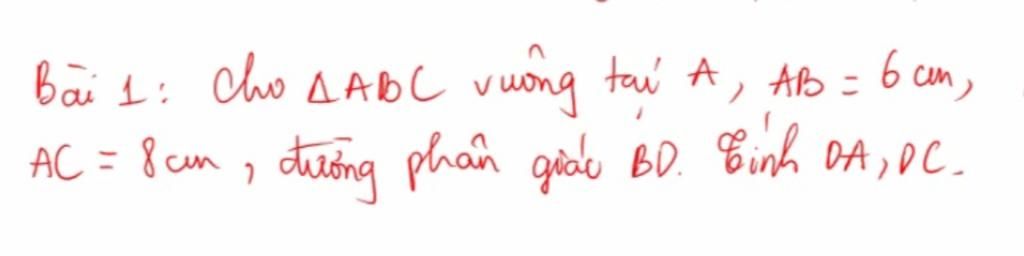 Bài 1: Cho ΔABC vuông tại A, AB = 6 cm,
AC = 8 cm, đường phân giác BD. Tính DA, DC.